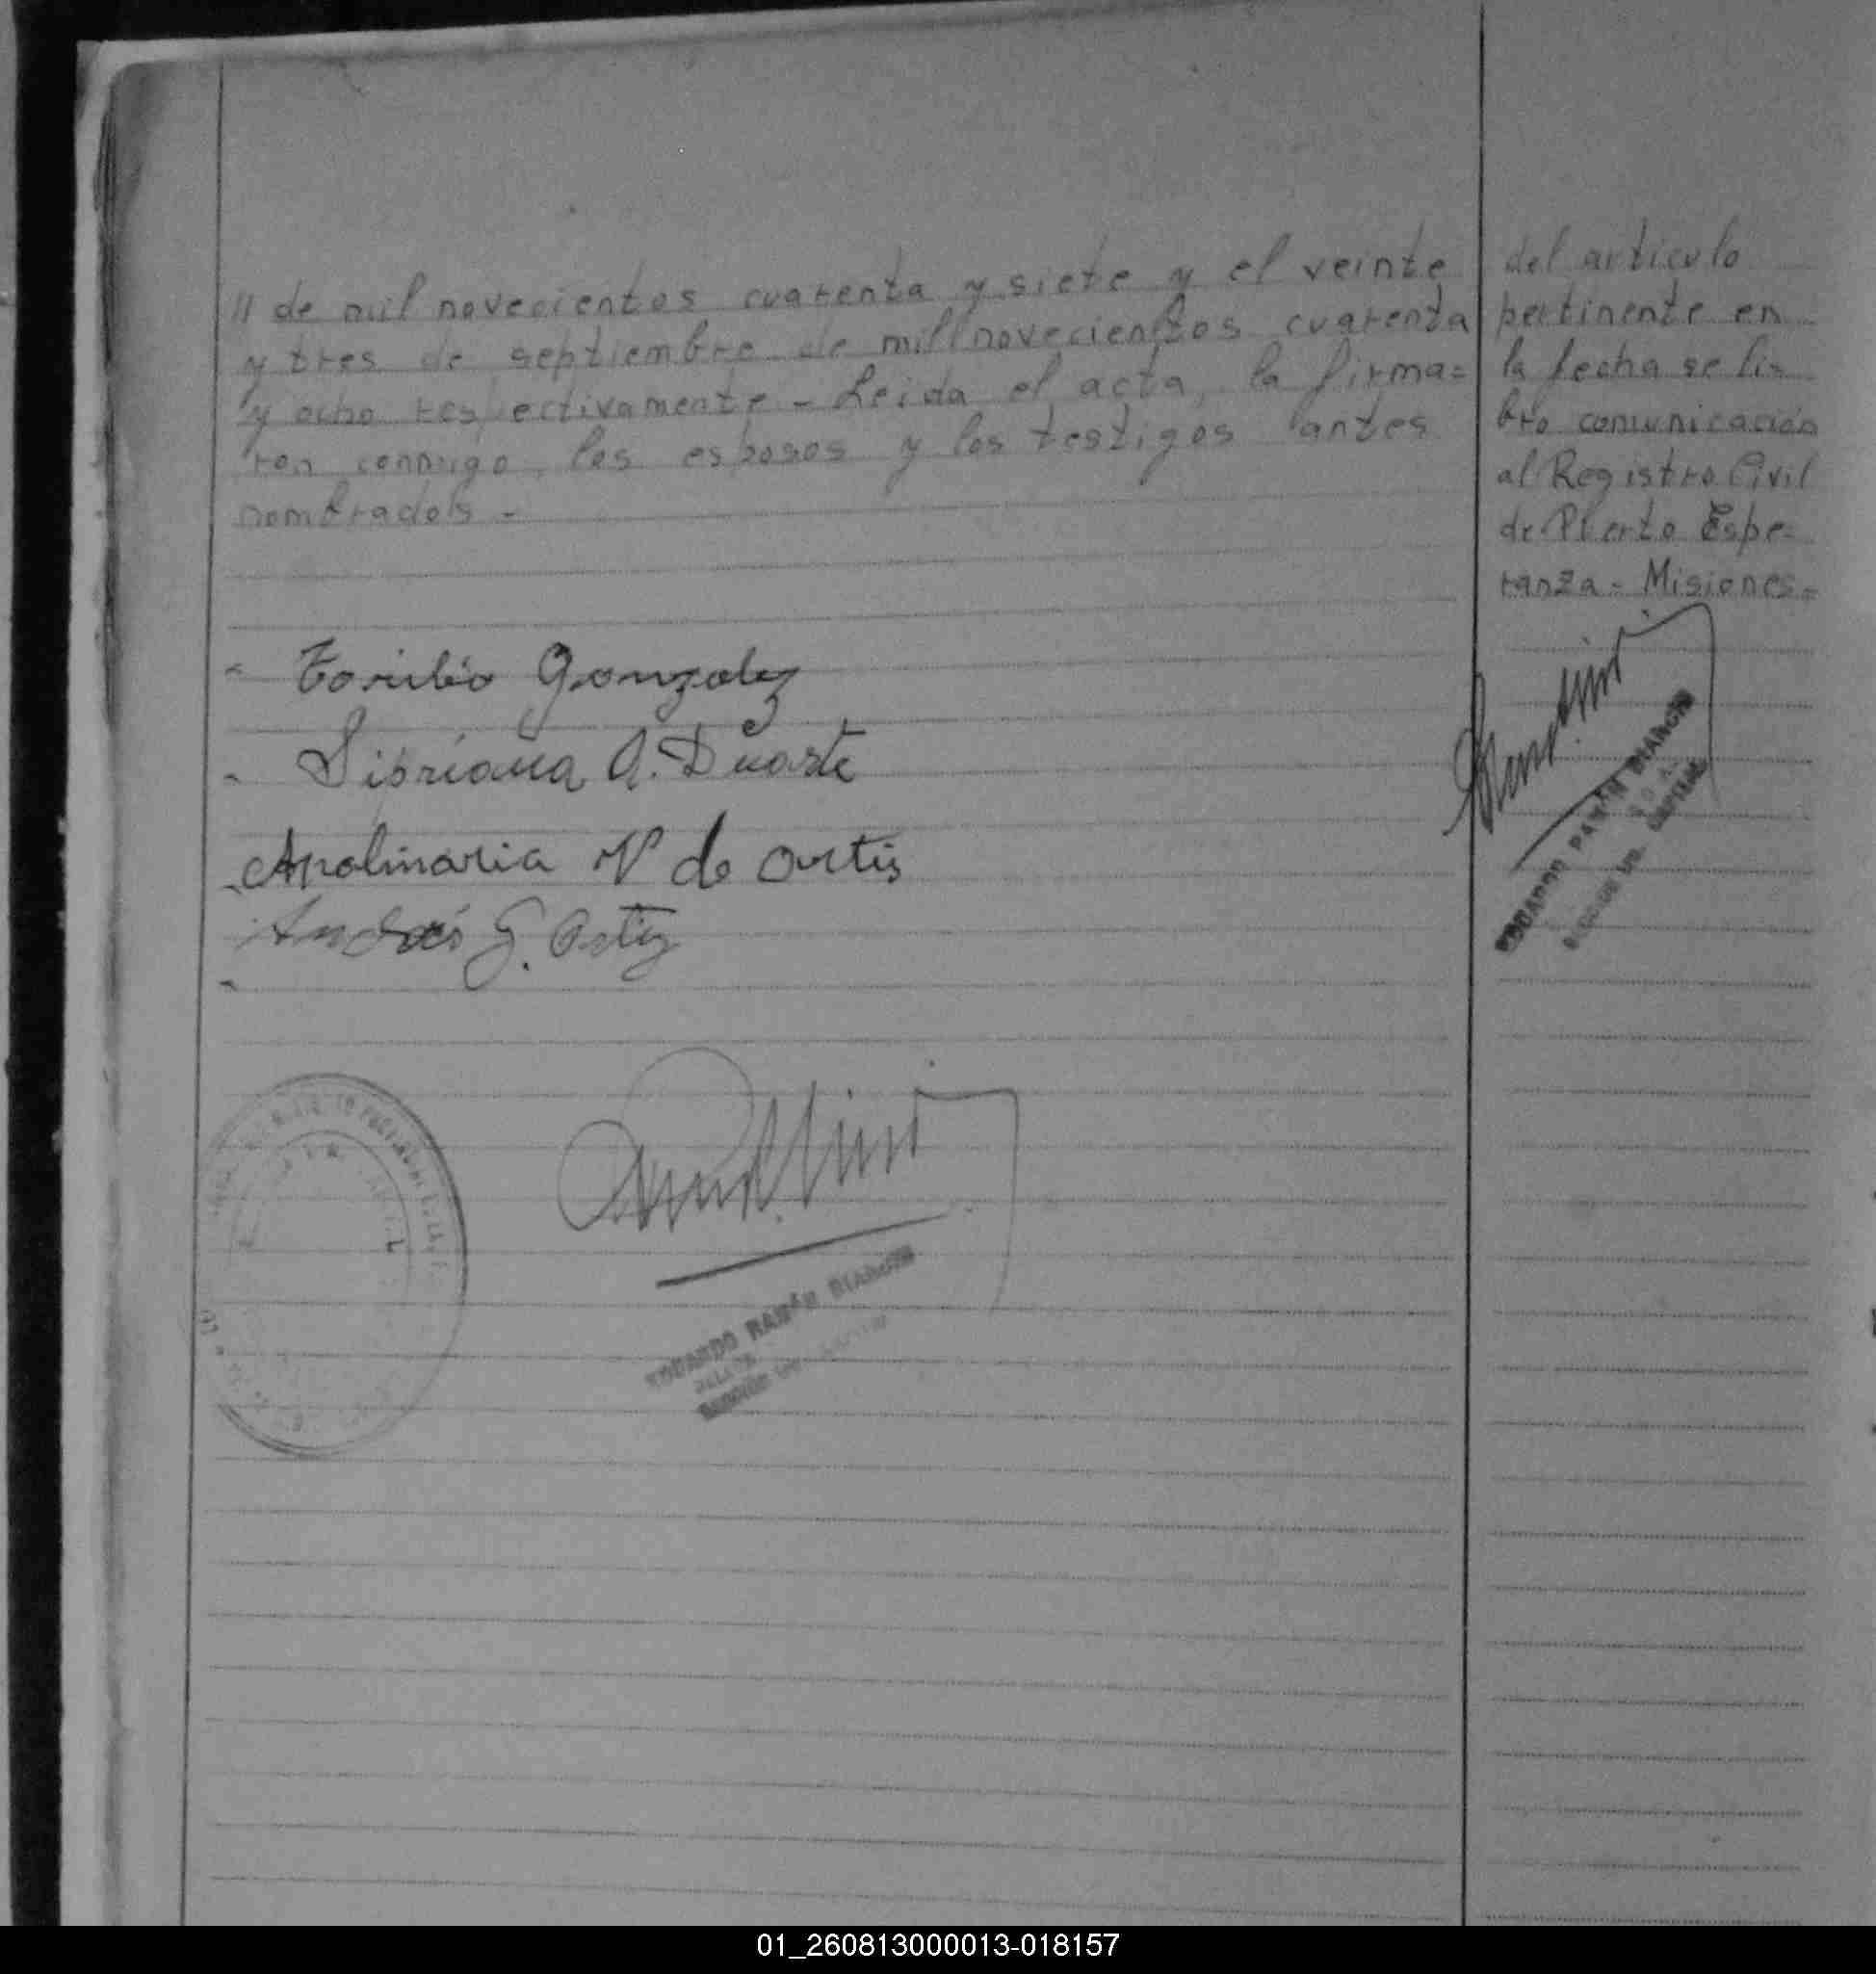 // de mil novecientos cuarenta y siete y el veinte
y tres de septiembre de mil novecientos cuarenta
y ocho respectivamente - Leida el acta, la firma=
ron conmigo, los esposos y los testigos antes
nombrados -
Toribio Gonzalez
Sipriana A. Duarte
Apolinaria V de Ortis
Andrés G. Ortiz
EDUARDO RAMÓN BIANCHI
del articulo
pertinente en
la fecha se li=
bro comunicación
al Registro Civil
de Puerto Espe=
ranza = Misiones =
EDUARDO RAMÓN BIANCHI
01_260813000013-018157